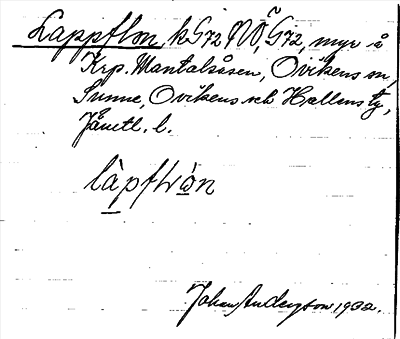 Lappflon, k G72 NÖ, G72, myr å
Krp. Mantalsåsen, Ovikens sn,
Sunne, Ovikens och Hallens tg,
Jämtl. l.
làpftrón
Johan Andersson 1932.